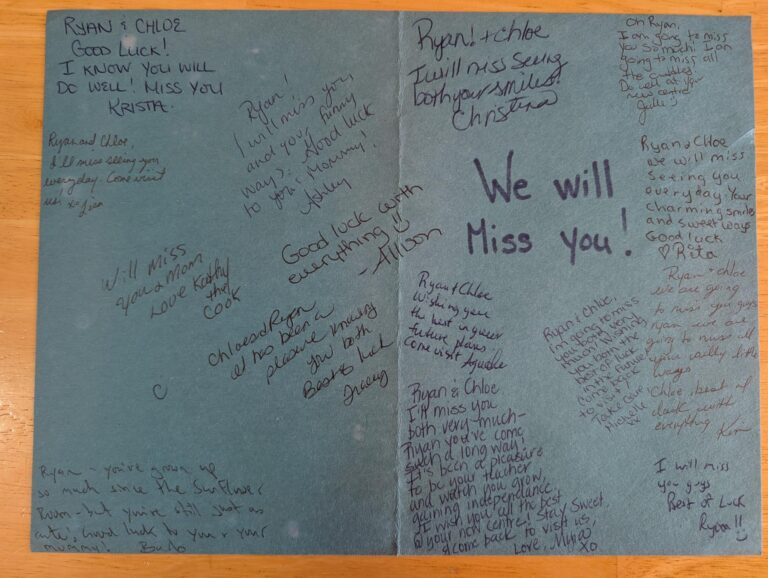 RYAN & CHLOE
GOOD LUCK!
I KNOW YOU WILL
DO WELL! MISS YOU
KRISTA.
Ryan and Chloe,
I'll miss seeing you
everyday. Come visit
us!
Ryan!
I will miss you
and your funny
ways. Good luck
to you & Mommy!
Ashley
Good luck with
everything
- Allison
Will miss
you & Mom
Love Kathy
the
Cook
Chloe and Ryan
it has been a
pleasure knowing
you both
Best of luck
Tracey
Ryan - you've grown up
so much since the Sunflower
Room - but you're still just as
cute! Good luck to you & your
mommy!
Ryan! + Chloe
I will miss seeing
both your smiles!
Christina
Oh Ryan,
I am going to miss
you so much! I am
going to miss all
the cuddles
Do well at your
new centre
Julie
We will
Miss you!
Ryan & Chloe
We will miss
seeing you
everyday. Your
charming smile
and sweet ways
Good luck
♡ Rita
Ryan & Chloe
Wishing you
the best in your
future plans
Come visit
Ryan & Chloe,
I'm going to miss
you both very
much. Wishing
you both the
best of luck
in the future!
Come back
to visit!
Take Care,
Michelle
Ryan & Chloe
we are going
to miss you guys
ryan we are
going to miss all
your silly little
ways
Chloe best of
luck with
everything Kim
Ryan & Chloe
I'll miss you
both very-much-
Ryan you've come
such a long way!
It's been a pleasure
to be your teacher
and watch you grow,
gaining independance.
I wish you all the best
at your new centre! Stay Sweet
& come back to visit us,
Love,
XO
I will miss
you guys
Best of Luck
Ryan!!